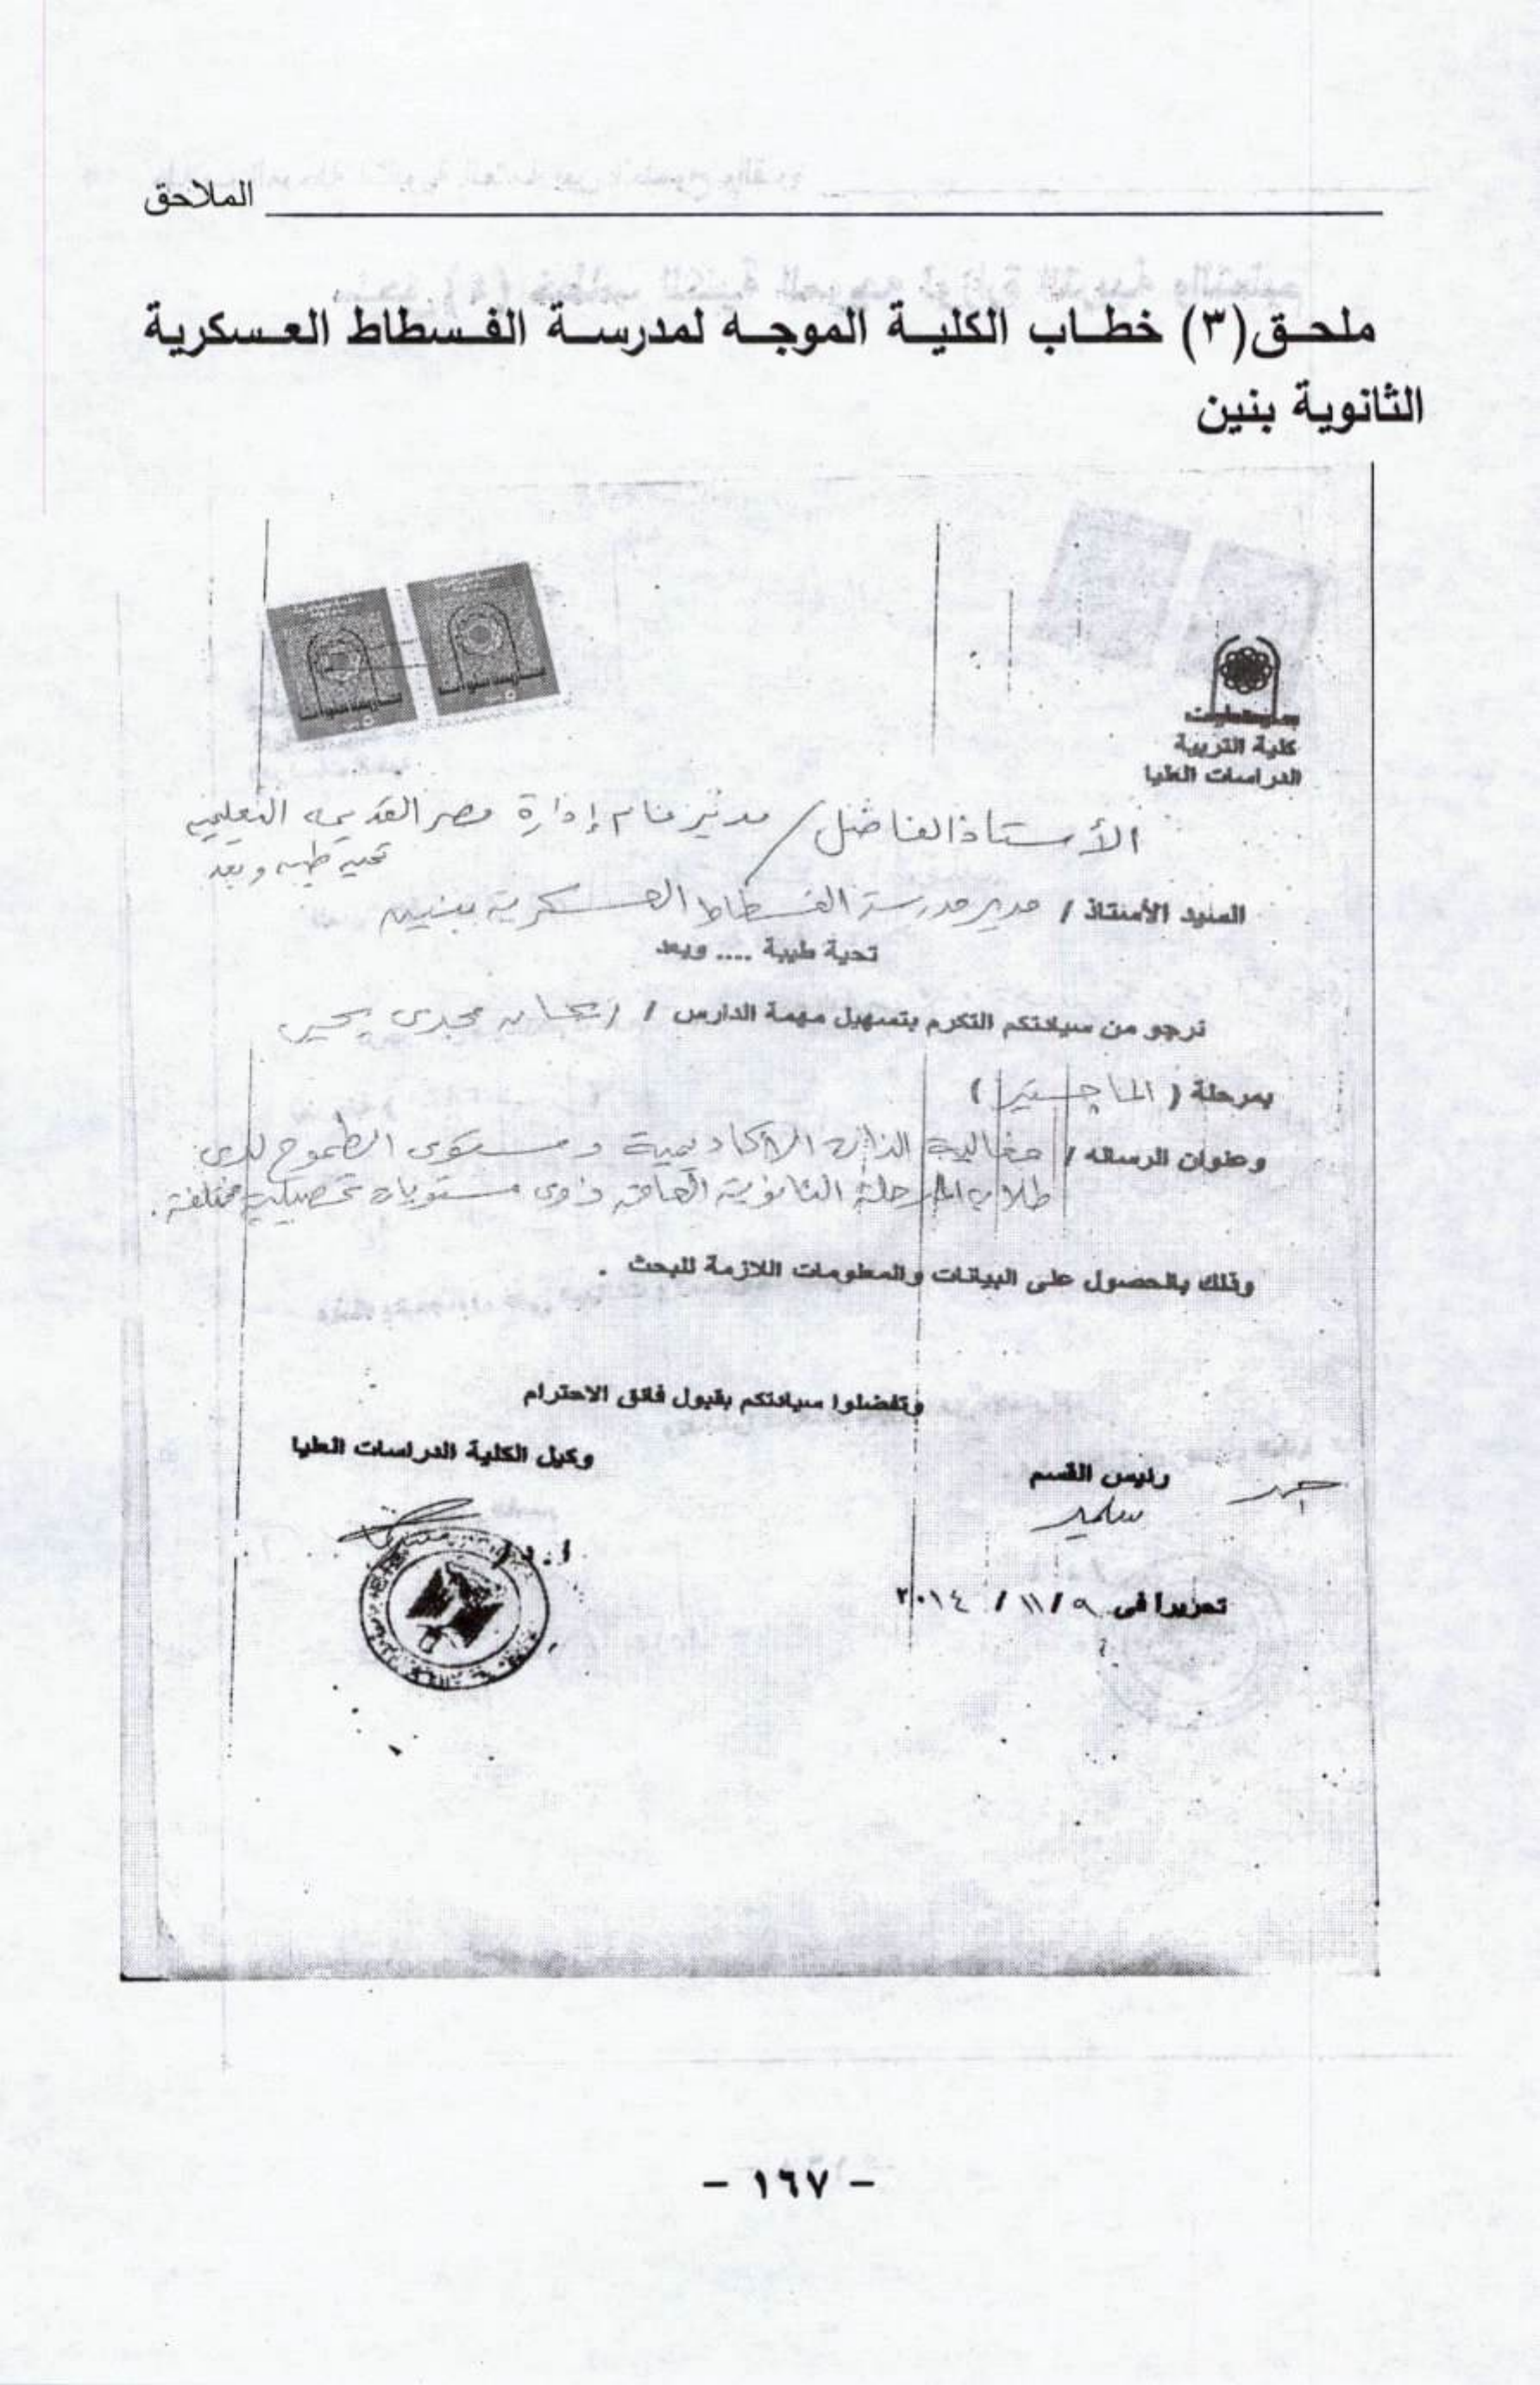 الملاحق
ملحق(٣) خطاب الكلية الموجه لمدرسة الفسطاط العسكرية
الثانوية بنين
كلية التربية
الدراسات العليا
الأستاذ الفاضل / مدير عام إدارة مصر القديمة التعليمية
تحية طيبة وبعد
السيد الأستاذ / مدير مدرسة الفسطاط العسكرية بنين
تحية طيبة .... وبعد
نرجو من سيادتكم التكرم بتسهيل مهمة الدارس / مجدى يحيى
بمرحلة ( الماجستير )
وعنوان الرسالة / فعالية الذات الأكاديمية ومستوى الطموح لدى
طلاب المرحلة الثانوية العامة ذوى مستويات تحصيلية مختلفة .
وذلك بالحصول على البيانات والمعلومات اللازمة للبحث .
وتفضلوا سيادتكم بقبول فائق الاحترام
رئيس القسم
وكيل الكلية الدراسات العليا
أ.د/
تحريرا فى ٩ / ١١ / ٢٠١٤
- ١٦٧ -